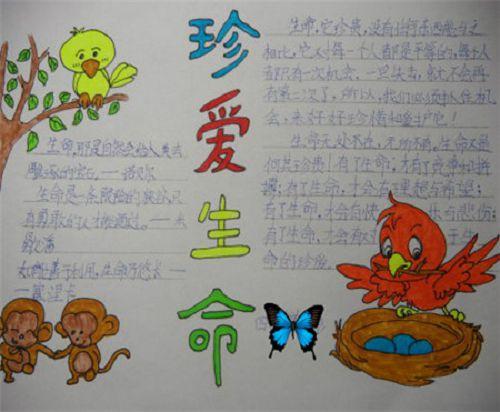 珍爱生命
生命,那是自然会给人类去
雕琢的宝石——诺贝尔
生命是一条艰险的峡谷,只
有勇敢的人才能通过。——米
歇潘
如能善于利用,生命乃悠长——
塞涅卡
生命,它珍贵,没有任何东西能与之
相比,它对每一个人都是平等的,每个人
都只有一次机会,一旦失去,就不会再
有第二次了,所以,我们必须抓住机
会,来好好珍惜和爱护它!
生命无处不在,无所不有,生命不是
何其珍贵!有了生命,才有了竞争和拼
搏;有了生命,才会有理想与希望;
有了生命,才会有快 乐与悲伤;
有了生命,才会有对 于生
命的珍爱。